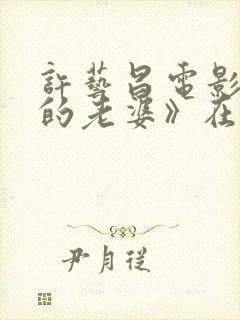 許藝昌電影
的老婆》在
尹月從